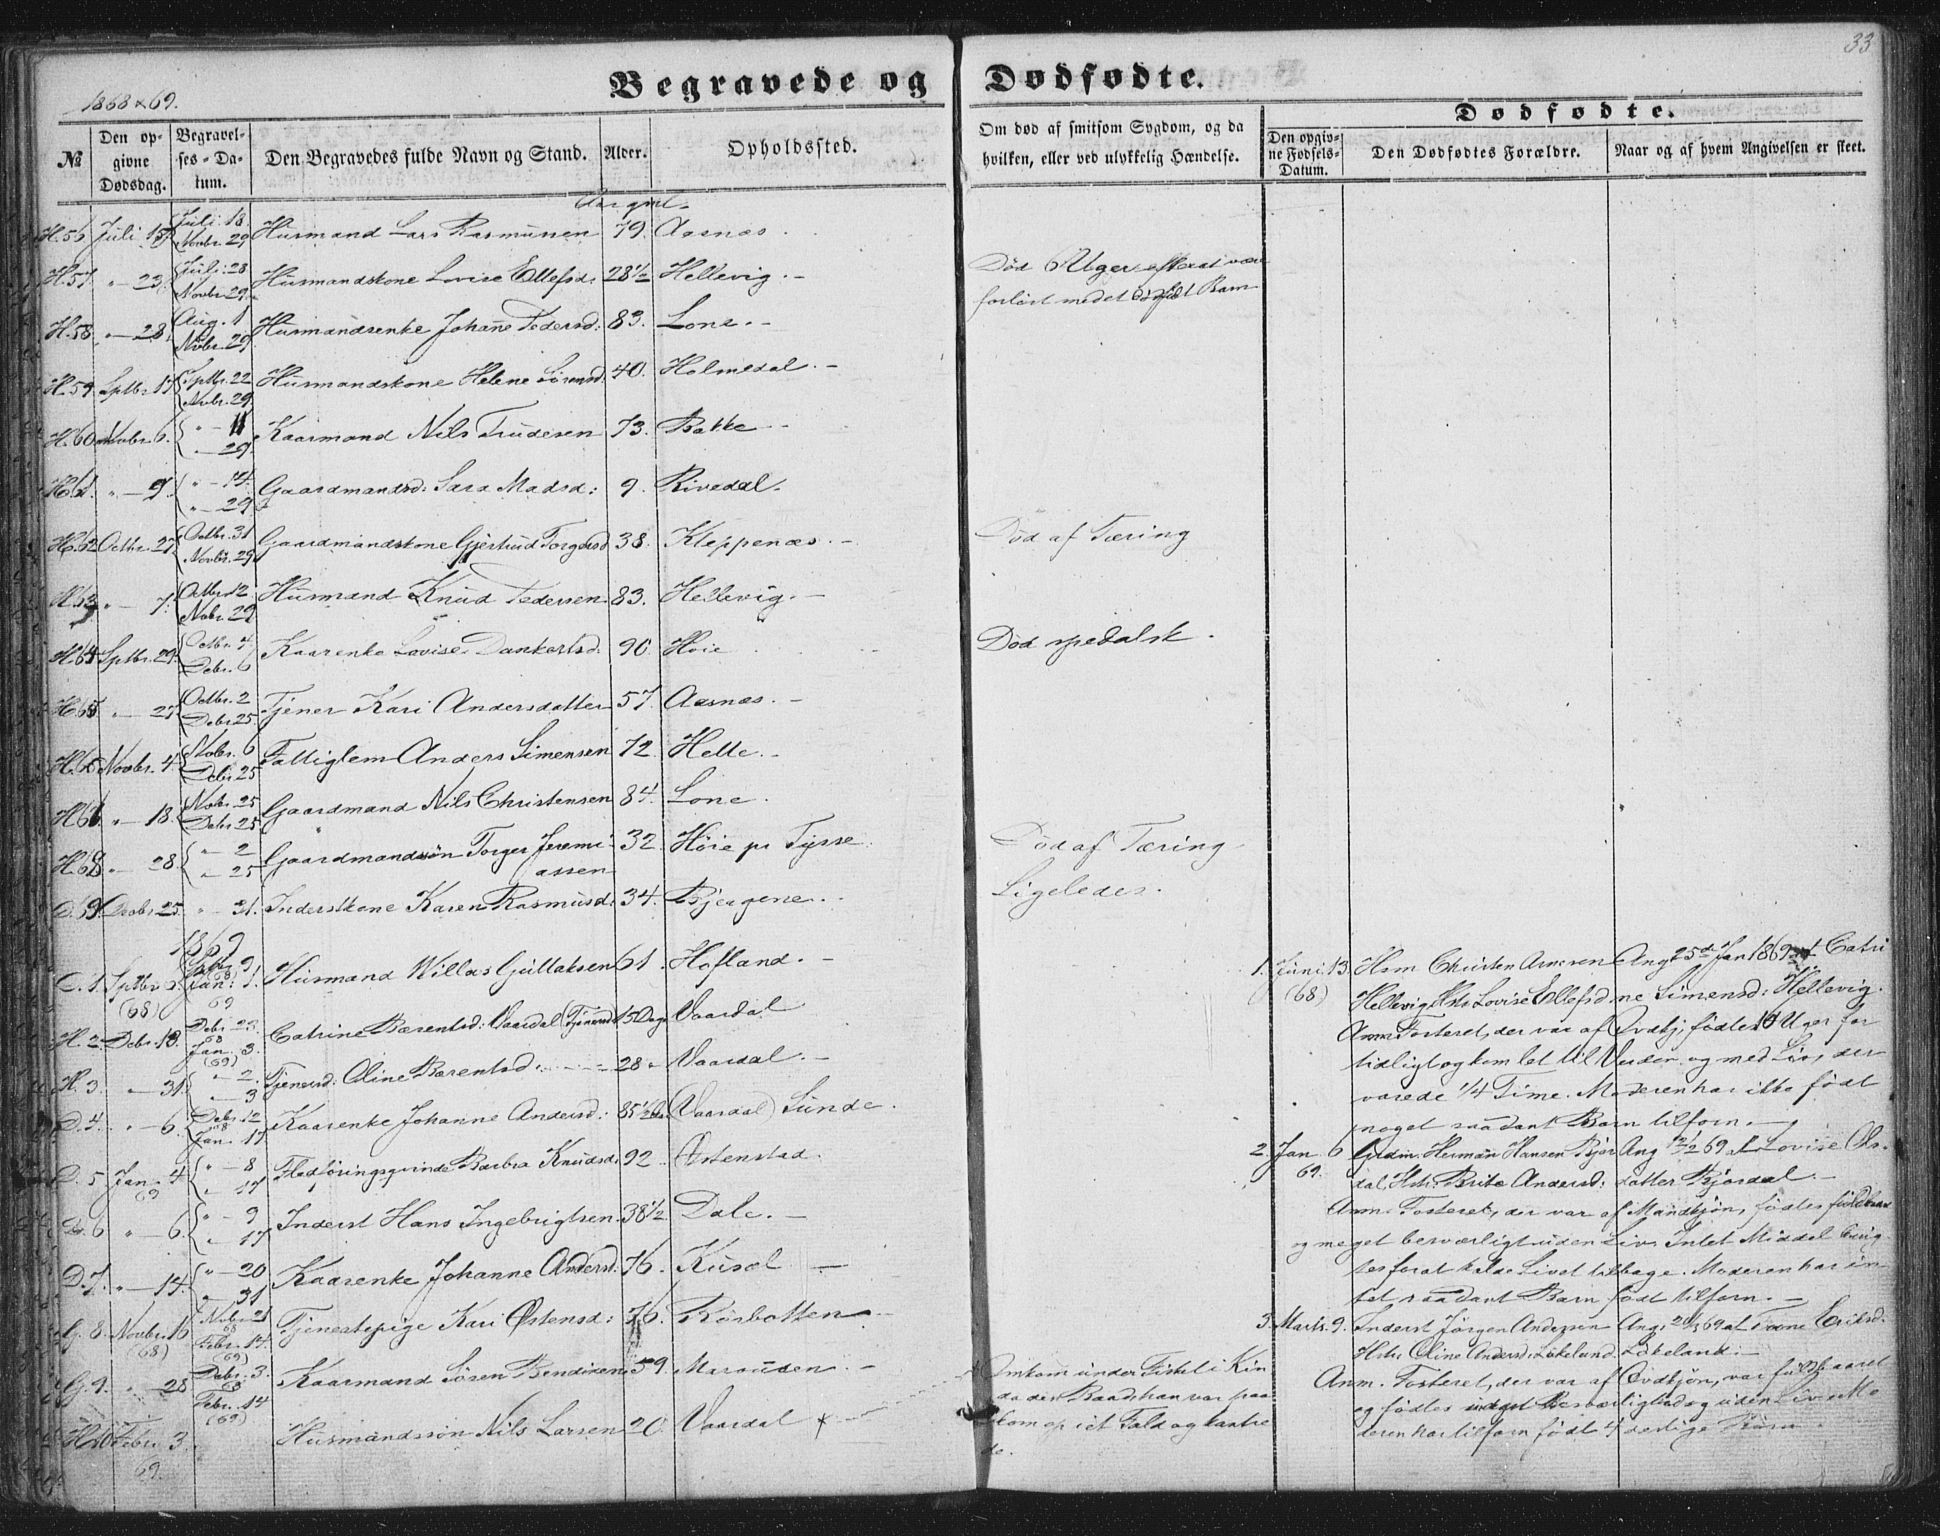 33
1868 & 69.
Begravede og Dødfødte.
Dødfødte.
№
Den opgivne Dødsdag.
Begravelses-Datum.
Den Begravedes fulde Navn og Stand.
Alder.
Opholdssted.
Om død af smitsom Sygdom, og da hvilken, eller ved ulykkelig Hændelse.
Den opgivne Fødsels-Datum.
Den Dødfødtes Forældre.
Naar og af hvem Angivelsen er skeet.
Aar gml.
H. 56 Juli 15 Juli 18 Novbr. 29 Husmand Lars Rasmussen 79. Aasnæs.
H. 57. " — 23. Juli 28 Novbr. 29. Husmandskone Lovise Ellefsd: 28 1/2 Hellevig. — Død 6 Uger efterat være
forløst med et dødfødt Barn
H. 58. " — 28. Aug. 1 Novbr. 29 Husmandsenke Johane Pedersd: 83. Lone. —
H. 59. Sptbr. 17. Sptbr. 22 Novbr. 29. Husmandskone Helene Sørensd: 40. Holmedal. —
H. 60 Novbr. 6. " — 11 " — 29. Kaarmand Nils Trudesen 73. Bakke —
H. 61. " — 9. " — 14. " — 29 Gaardmandsd: Sara Madsd: 9. Rivedal.
H. 62 Octbr. 27. Octbr. 31 Novbr. 29. Gaardmandskone Gjertrud Torgersd 38. Kleppenæs. — Død af Tæring
H. 63 " — 7. Octbr. 12 Novbr. 29 Husmand Knud Pedersen 83. Hellevig. —
H. 64 Sptbr. 29. Octbr. 4 Debr. 6 Kaarenke Lovise Dankertsd. 90. Høie Død spedalsk.
H. 65 " — 27 Octbr. 2 Debr. 25. Tjener Kari Andersdatter 57. Aasnæs. —
H. 66 Novbr. 4. Novbr. 6 Debr. 25 Fattiglem Anders Simensen 72. Helle. —
H. 67 " — 18. Novbr. 25 Debr. 25. Gaardmand Nils Christensen 84. Lone.
H. 68 " — 28. " — 2 " — 25 Gaardmandssøn Torger Jeremi- 32. Høie pr Tysse Død af Tæring
assen
D. 69 Decbr. 25. " — 31. Inderstkone Karen Rasmusd: 34. Bjergene. Ligeledes.
1869
D. 1. Sptbr. (68) Jan: 1. 69 Husmand Willas Gullaksen 61. Hofland. —
H. 2. Debr. 18. Debr. 23. 68 Jan. 3. (69) Catrine Bærentsd: Vaardal 15 Dage Vaardal
H. 3. " — 31. " — 2. " — 3 Tjenersd: Oline Bærentsd. 28 " Vaardal. —
D. 4. " — 6. Debr. 12 68 Jan. 17 Kaarenke Johanne Andersd: 85 1/2 (Vaardal) Sunde.
D. 5 Jan. 4 69 " — 8 " — 17 Flodføringsqvinde Barbra Knudsd: 92. Østenstad.
D. 6 " — 6. " — 9 " — 17 Inderst Hans Ingebrigtsen 38 1/2 Dale. —
D. 7. " — 14. " — 20 " — 31 Kaarenke Johanne Andersd: 76. —
G. 8. Novbr. 16 (68) Novbr. 21 68 Febr. 14. (69) Tjenestepige Kari Østensd: 76. Rørbotten —
G. 9. " — 28 Debr. 3. 68 Febr. 14 (69) Kaarmand Søren Bendixen 59. —
H. 10 Febr. 3. 69. Husmandssøn Nils Larsen 20. Vaardal
Omkom under Fiskeri i Kin
da den Baad han var paa
kom op i et Fald og kantre
de.
1. Juni 13. (68) Hsm Christen Arnesen Ang. 25de Jan 1869 af Catri
Hellevig Hstr Lovise Ellefsd. ne Simensd: Hellevig.
Anm. Fosteret, der var af Qvdkj. fødtes 10 Uger for
tidligt og kom let til Verden og med Liv, der
varede 1/4 Time. Moderen har ikke født
noget saadant Barn tilforn. —
2. Jan 6 69. Grdm. Herman Hansen Bjør Ang 12/2 69 af Lovise Ols-
dal, Hstr. Brite Andersd: datter Bjørdal. —
Anm. Fosteret, der var af Mandkjøn, fødtes fuldbaaret
og meget besværligt uden Liv. Intet Middel brug-
tes forat kalde Livet tilbage. Moderen har in-
tet saadant Barn født tilforn. —
3. Marts 9. Inderst Jørgen Andersen Ang: 69 af Eriksd.
Hstr. Oline Andersd: Løkeland. Løkeland. —
Anm. Fosteret, der var af Qvdkjøn, var fuldbaaret
og fødtes med Besværlighed og uden Liv. Mo
deren har tilforn født 4 dødfødte Børn